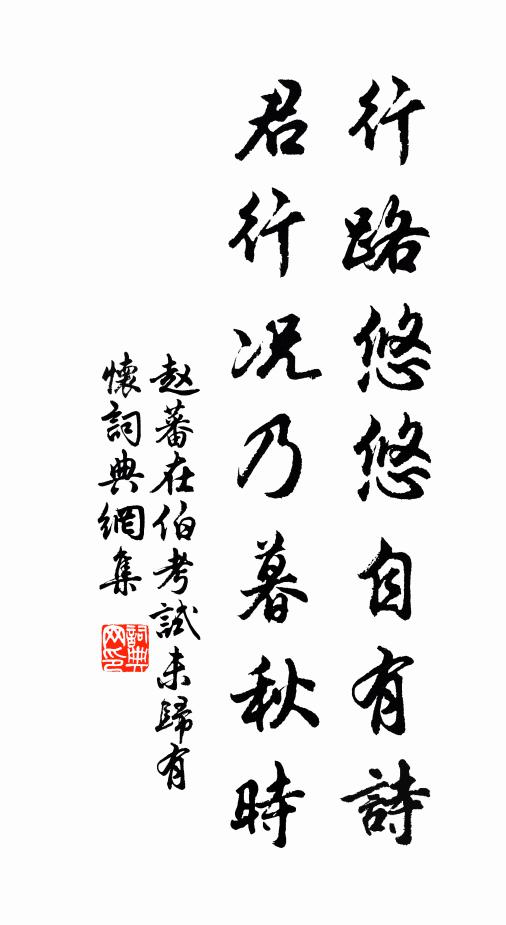 行路悠悠自有詩
君行况乃暮秋時
赵蕃在伯考試未歸有
懷詞典網集
詞典
网印